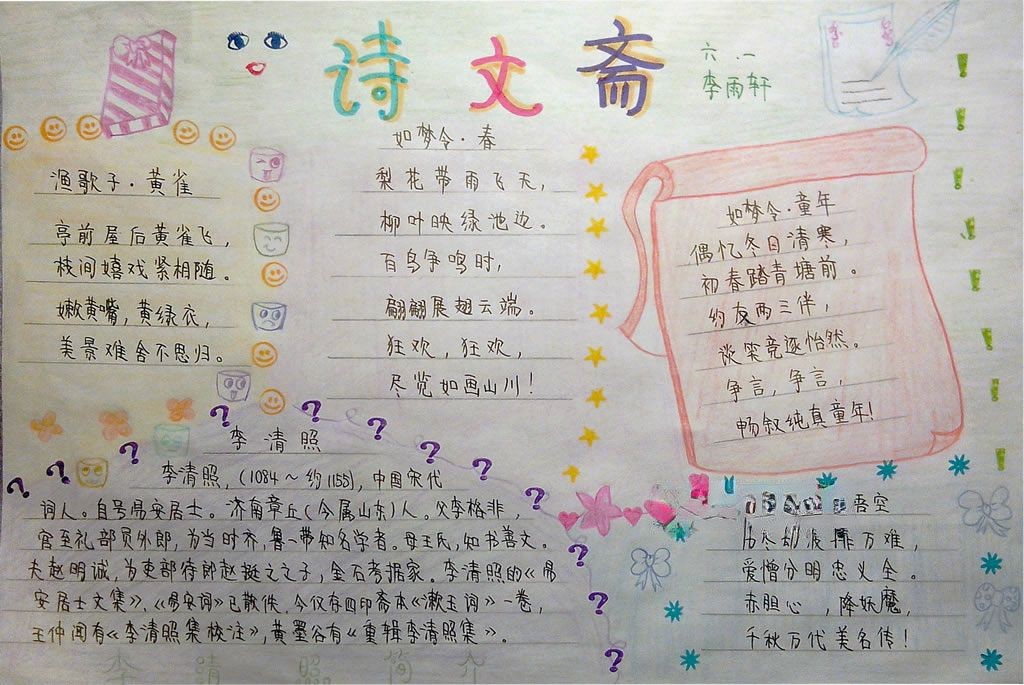 诗文斋
六.一
李雨轩
渔歌子·黄雀
亭前屋后黄雀飞，
枝间嬉戏紧相随。
嫩黄嘴，黄绿衣，
美景难舍不思归。
如梦令·春
梨花带雨飞天，
柳叶映绿池边。
百鸟争鸣时，
翩翩展翅云端。
狂欢，狂欢，
尽览如画山川！
如梦令·童年
偶忆冬日清寒，
初春踏青塘前。
约友两三伴，
谈笑竞逐怡然。
争言，争言，
畅叙纯真童年！
李清照
李清照，(1084～约1155)，中国宋代
词人。自号易安居士。济南章丘(今属山东)人。父李格非，
官至礼部员外郎，为当时齐、鲁一带知名学者。母王氏，知书善文。
夫赵明诚，为吏部侍郎赵挺之之子，金石考据家。李清照的《易
安居士文集》、《易安词》已散佚。今仅存四印斋本《漱玉词》一卷，
王仲闻有《李清照集校注》，黄墨谷有《重辑李清照集》。
李清照简介
悟空
难，
爱憎分明忠义全。
赤胆心，降妖魔，
千秋万代美名传！